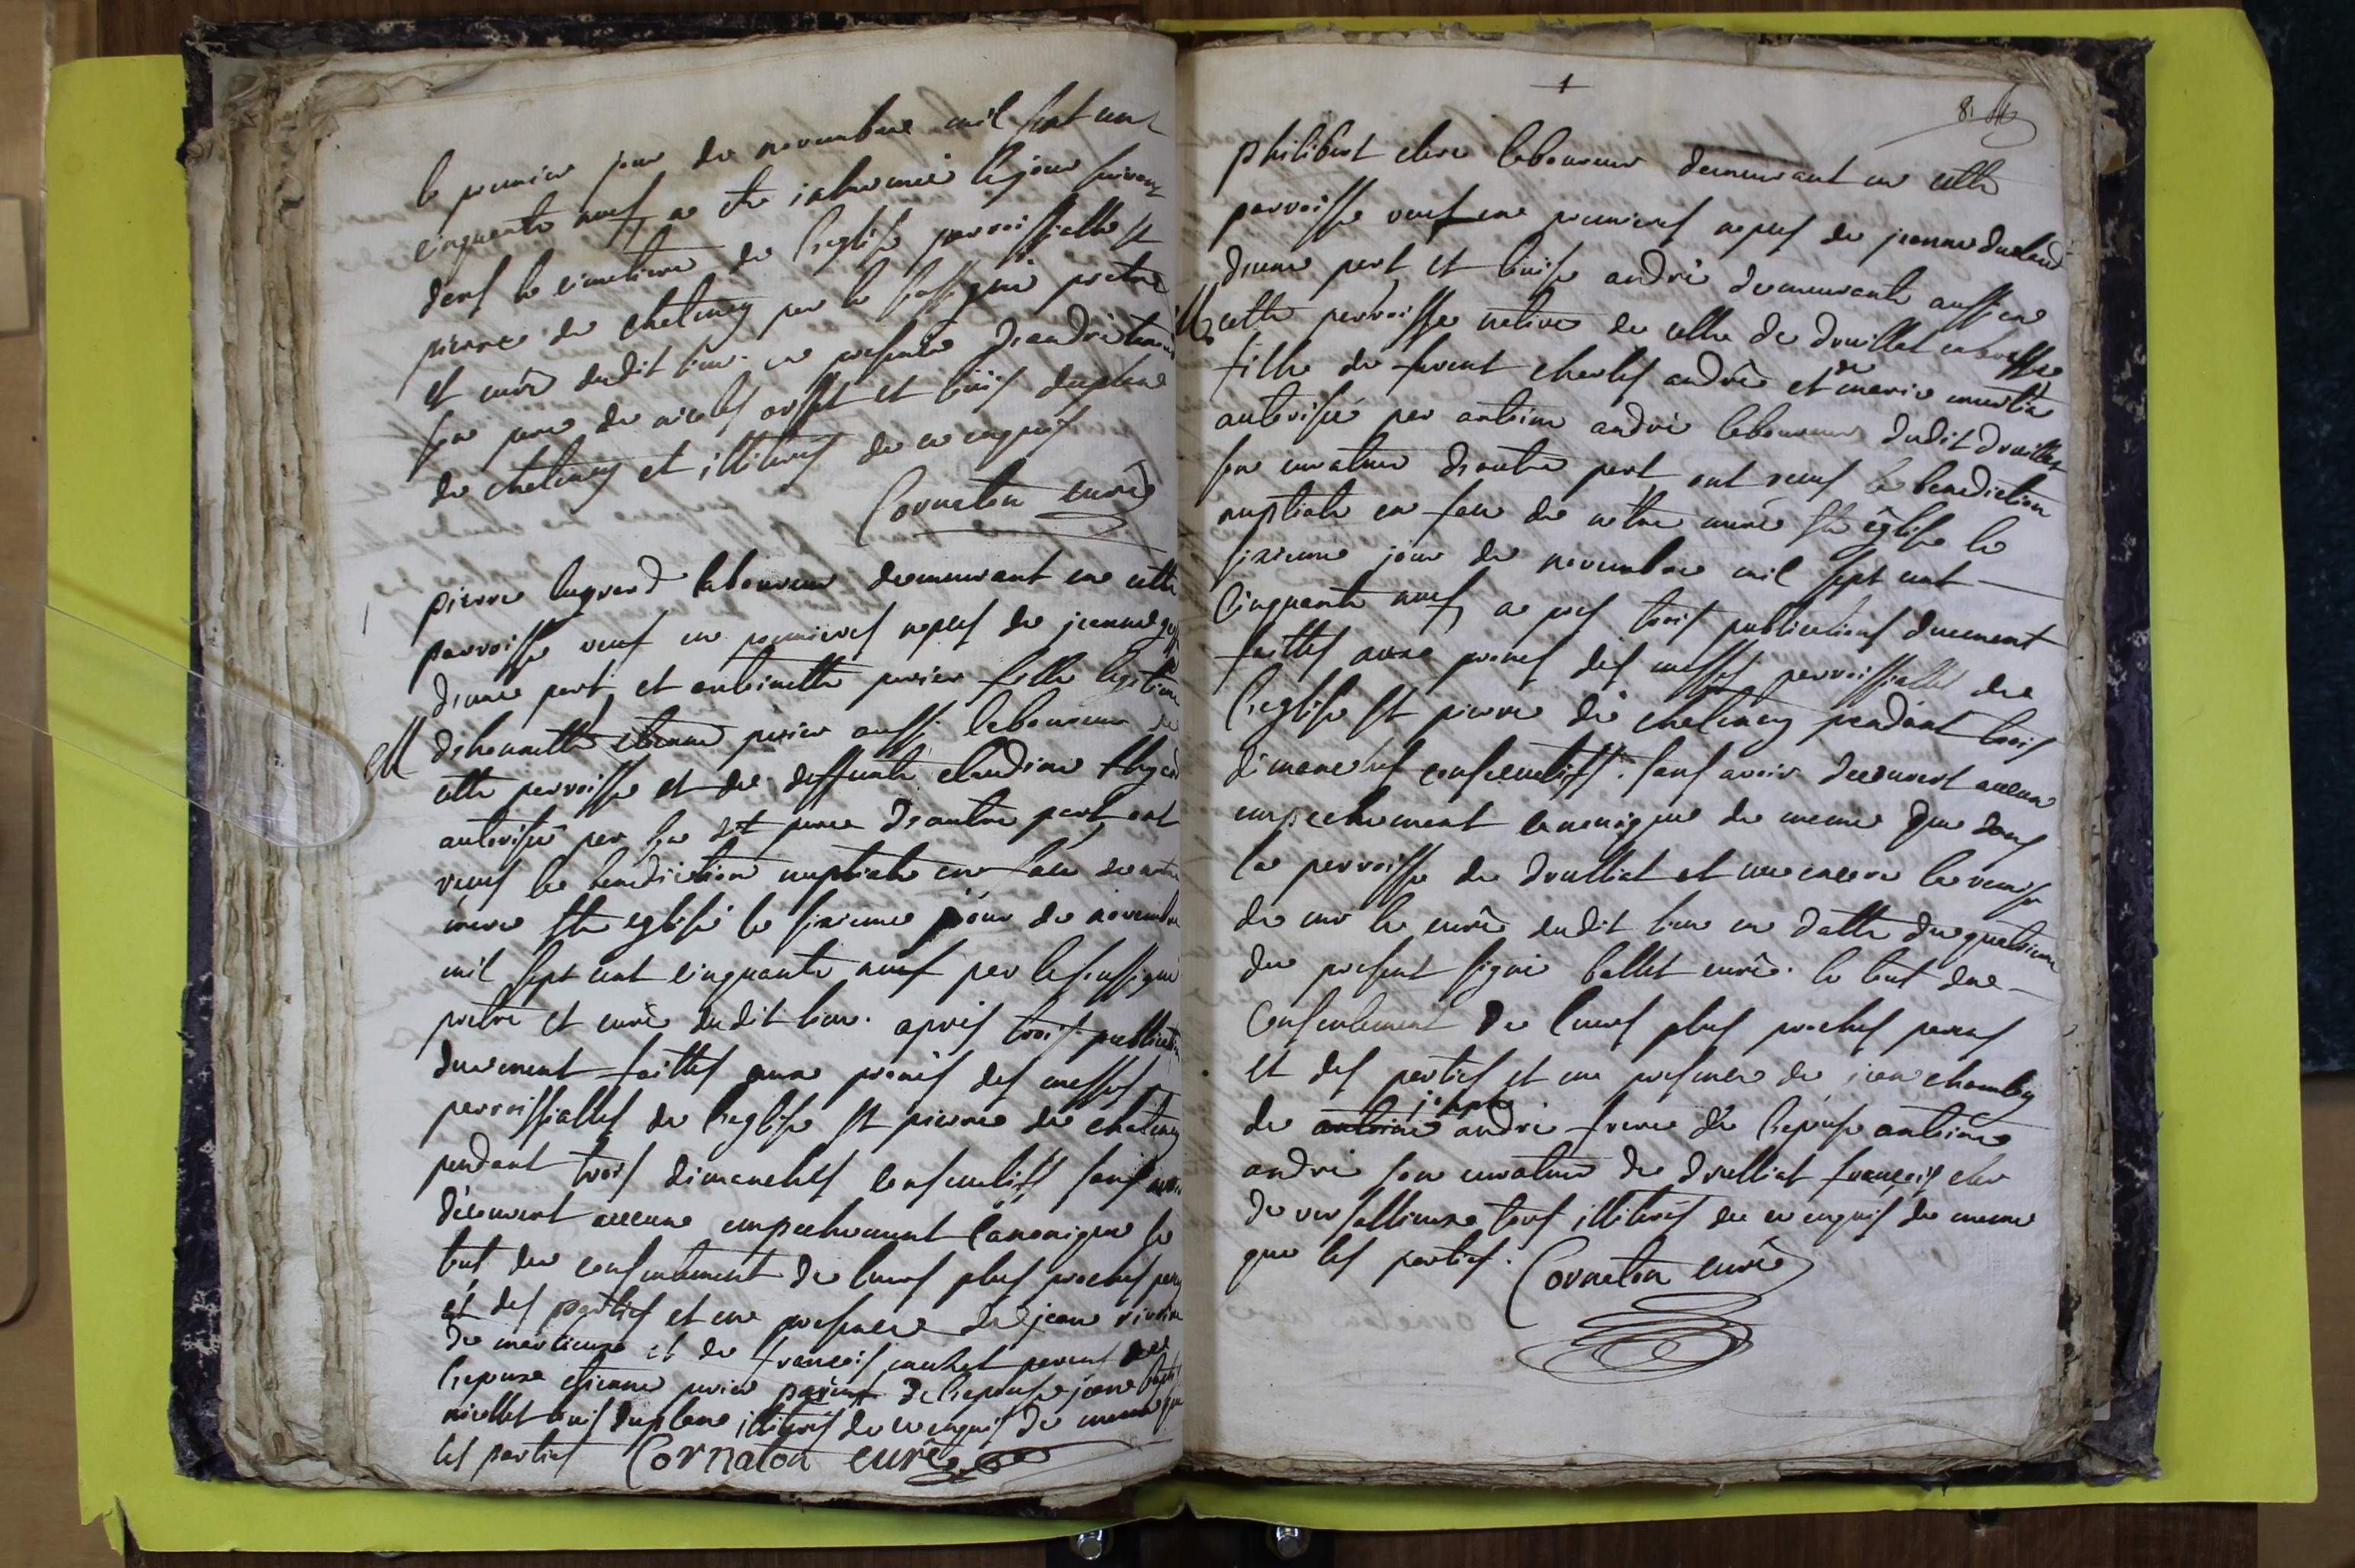 le premier jour de novembre mil sept cent
cinquante neuf, a eté inhumé le jour suivant
dans le cimetiere de l'eglise parroissialle st
pierre de chatenay par le soussigné pretre
et curé dudit lieu en presence d'andré
son pere de nicolas et louis duplane
de chatenay et illiterés de ce enquis
Cornaton curé
pierre laboureur demeurant en cette
parroisse veuf en premieres nopces de jeanne
d'une part, et antoinette perier fille legitime
d'honnette etienne perier aussi laboureur de
cette parroisse et de deffunte claudine
autorisée par son dit pere d'autre part, ont
reçus la benediction nuptiale en face de notre
mere ste eglise le sixieme jour de novembre
mil sept cent cinquante neuf par le soussigné
pretre et curé dudit lieu. après trois publications
duement faittes aux prônes des messes
parroissialles de l'eglise st pierre de chatenay
pendant trois dimanches consecutifs sans avoir
découvert aucune empechement canonique le
tout du consentement de leurs plus proches
et des parties et en presence de jean
de et de françois parent de
l'epoux etienne perier de l'epouse jean
louis duplane illiterés de ce enquis de meme que
les parties Cornaton curé
81
philibert clere laboureur demeurant en cette
parroisse veuf en premieres nopces de jeanne
d'une part et louise andré demeurante aussi en
cette parroisse native de celle de druillat en bresse
fille de furent charles andré et de marie
autorisée par antoine andré laboureur dudit druillat
son curateur d'autre part ont reçus la benediction
nuptiale en face de notre mere ste église le
sixieme jour de novembre mil sept cent
cinquante neuf, a près trois publications duement
faittes aux prones des messes parroissialles de
l'eglise st pierre de chatenay pendant trois
dimanches consecutifs. sans avoir decouvert aucun
empechement canonique de meme que dans
la parroisse de drulliat et la remise
de mr le curé dudit lieu en datte du quatrieme
du present signé ballet curé. le tout du
consentement de leurs plus proches parens
et des parties et en presence de jean
joseph
de antoine andré frere de l'epouse antoine
andré son curateur de drulliat françois
de versallieux tous illiterés de ce enquis de meme
que les parties. Cornaton curé